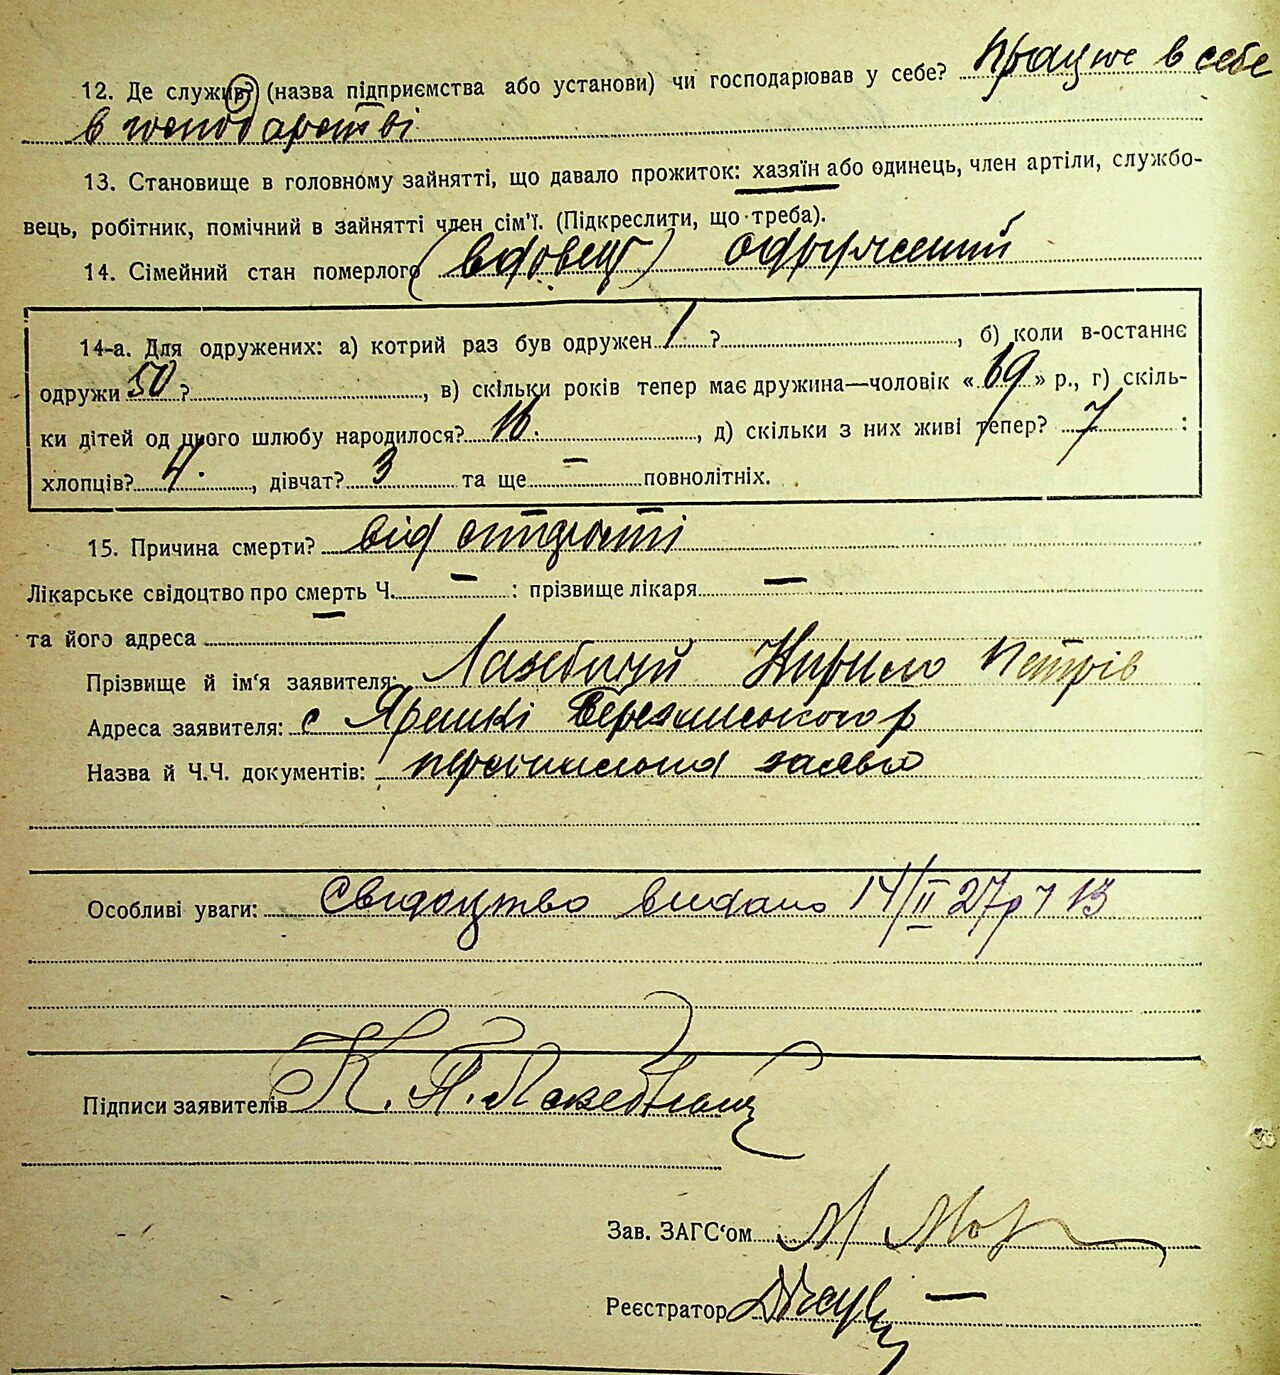 12. Де служив? (назва підприємства або установи) чи господарював у себе? Працює в себе
в господарстві
13. Становище в головному зайнятті, що давало прожиток: хазяїн або одинець, член артіли, службо-
вець, робітник, помічний в зайнятті член сім'ї. (Підкреслити, що треба).
14. Сімейний стан померлого (вдовец) одружений
14-а. Для одружених: а) котрий раз був одружен 1 ?, б) коли в-останнє
одружи 50 ?, в) скільки років тепер має дружина—чоловік « 69 » р., г) скіль-
ки дітей од цього шлюбу народилося? 16., д) скільки з них живі тепер? 7 :
хлопців? 4., дівчат? 3 та ще — повнолітніх.
15. Причина смерти? від старости
Лікарське свідоцтво про смерть Ч. — : прізвище лікаря —
та його адреса —
Прізвище й ім'я заявителя: Кирило Петрів
Адреса заявителя: с Ярешкі р
Назва й Ч.Ч. документів: персональна заява
Особливі уваги: Свідоцтво видано 14/II 27р ч 13
Підписи заявителів К. П.
Зав. ЗАГС'ом
Реєстратор